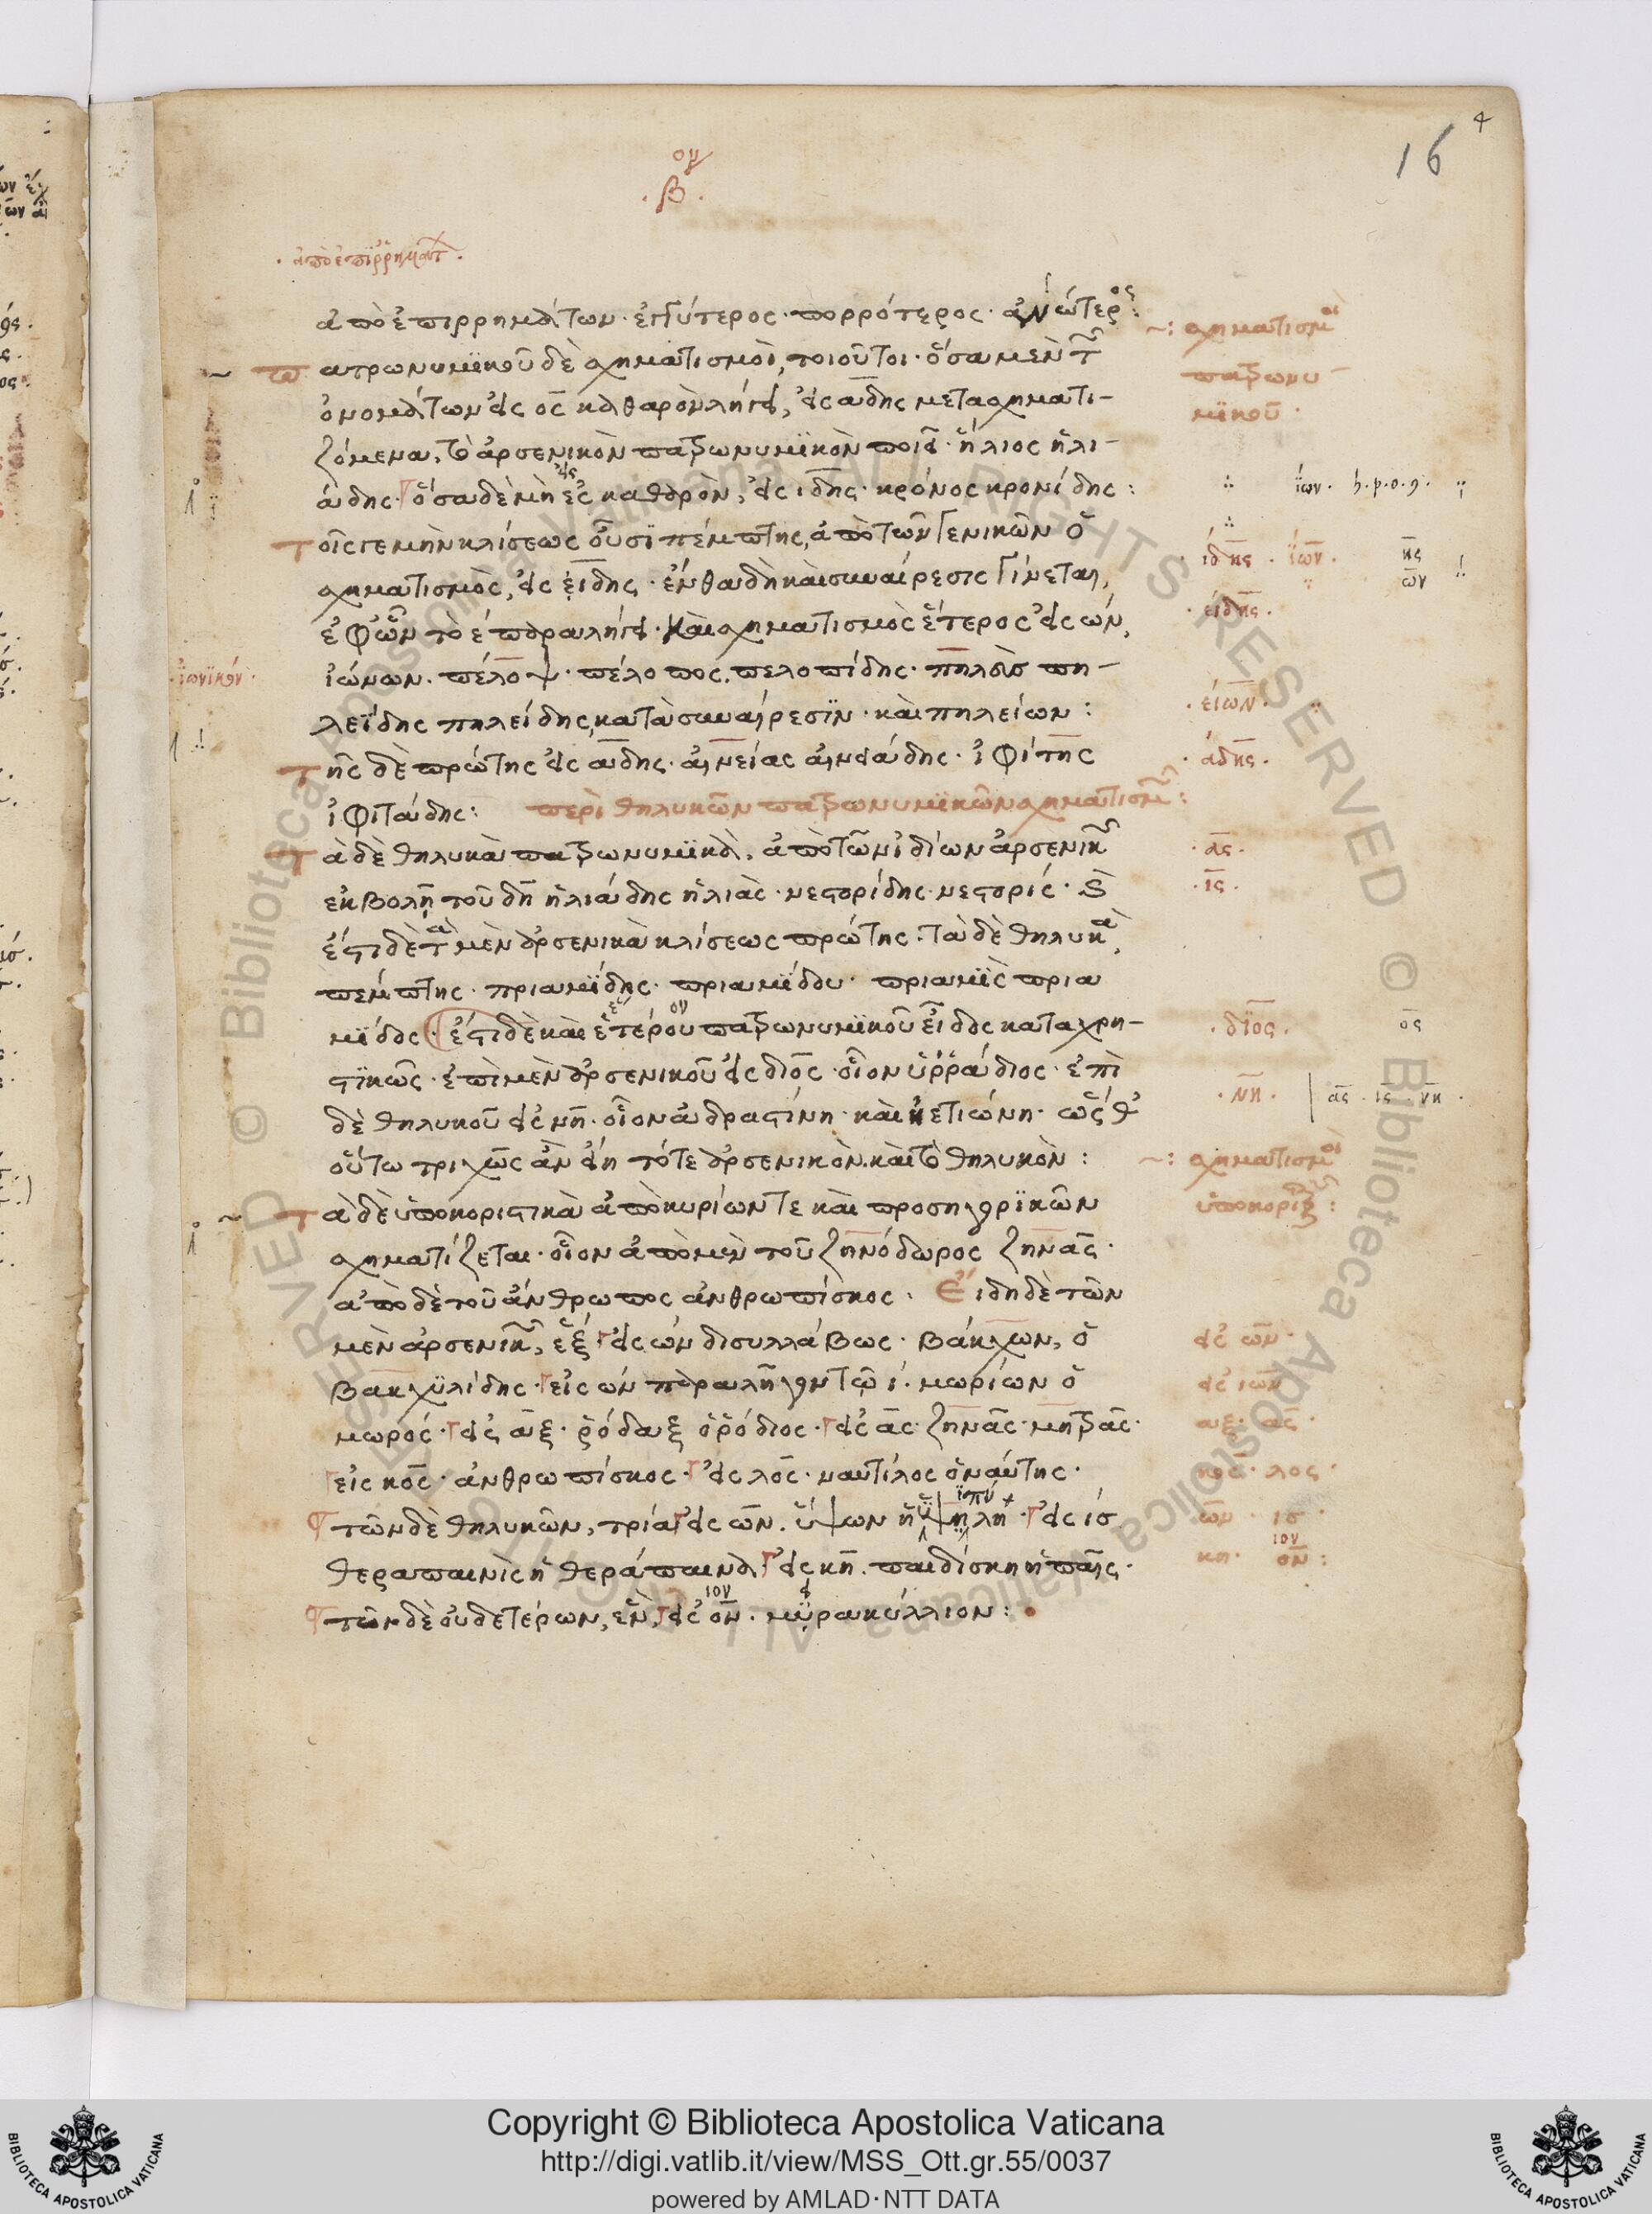 4
16
ου
.β.
. ἀπὸ ἐπιρρημάτ .
ἀπὸ ἐπιρρημάτων· ἐγγύτερος· πορρότερος· ἀνώτερος:
πατρωνυμϊκοῦ δὲ σχηματισμοὶ, τοιοῦτοι· ὅσα μὲν τ
ὀνομάτων εἰς ος καθαρὸν λήγει, εἰς αδης μετασχηματι-
ζόμενα, τὸ ἀρσενικὸν πατρωνυμϊκὸν ποιεῖ· ἥλιος ἡλι-
άδης· ὅσα δὲ μὴ εἰς καθαρὸν, εἰς ιδης· κρόνος κρονίδης:
τοῖς γε μὴν κλίσεως οὖσϊ πέμπτης, ἀπὸ τῶν γενικῶν ὁ
σχηματισμὸς, εἰς εϊδης· ἔνθα δὴ καὶ συναίρεσις γίνεται,
ἐφ ὧν τὸ ε παραλήγει· καὶ σχηματισμὸς ἕτερος εἰς ων,
ἰώνων. πέλοψ· πέλοπος, πελοπίδης· πηλεὺς πη-
λεΐδης πηλείδης, κατὰ συναίρεσϊν· καὶ πηλείων:
τῆς δὲ πρώτης εἰς αδης. αἰνείας αἰνειάδης· ἰφίτης
ἰφιτάδης: περὶ θηλυκῶν πατρωνυμϊκῶν σχηματισμ:
τὰ δὲ θηλυκὰ πατρωνυμϊκὰ, ἀπὸ τῶν ἰδίων ἀρσενικ
ἐκβολῇ τοῦ δη ἡλιάδης ἡλιὰς· νεστορίδης νεστορίς·
ἔστι δὲ τὰ μὲν ἀρσενικὰ κλίσεως πρώτης. τὰ δὲ θηλυκὰ,
πέμπτης· πριαμϊδης· πριαμϊδου· πριαμϊς πρια
μϊδος· ἔστι δὲ καὶ ἑτέρου πατρωνυμϊκοῦ εἶδος καταχρη-
στϊκῶς· ἐπὶ μὲν ἀρσενικοῦ εἰς διος· οἷον ὑρράδιος· ἐπὶ
δὲ θηλυκοῦ εἰς νη· οἷον ἀδραστίνη· καὶ ἠετιώνη·
οὕτω τριχῶς ἂν εἴη τό τε ἀρσενικὸν, καὶ τὸ θηλυκὸν:
τὰ δὲ ὑποκοριστικὰ ἀπὸ κυρίων τε καὶ προσηγορϊκῶν
σχηματίζεται· οἷον ἀπὸ μὲν τοῦ ζηνόδωρος ζηνᾶς·
ἀπὸ δὲ τοῦ ἄνθρωπος ἀνθρωπίσκος· Εἴδη δὲ τῶν
μὲν ἀρσενικ, ἕξ· εἰς ων δισυλλάβως· βάκχων, ὁ
βακχϋλίδης· εἰς ων παραλῆγον τῷ ι. μωρίων ὁ
μωρός· εἰς αξ· ῥόδαξ ὁ ῥόδιος· εἰς ας· ζηνᾶς· μητρᾶς·
εἰς κος· ἀνθρωπίσκος· εἰς λος· ναυτίλος ὁ ναύτης·
τῶν δὲ θηλυκῶν, τρία· εἰς ων. ὕψων ἡ ὑψιπύλη· εἰς ισ
θεραπαινὶς ἡ θεράπαινα· εἰς κη. παιδίσκη ἡ παῖς·
τῶν δὲ οὐδετέρων, ἕν, εἰς ον. μϋρακύλλιον:
~: σχηματισμοὶ
πατρωνυ-
μϊκοῦ ·
ϊων.
· ίδης · ϊων ·
κς
ων
· είδης.
· ϊωνϊκόν ·
· είων.
· άδης.
· ας·
· ις.
· διος.
ος
· νη·
ας · ις · νη ·
~: σχηματισμοὶ
εἰς ων·
εἰς ιων
αξ· ας·
κος· λος·
ων · ισ
κη· ιον ον:
Copyright © Biblioteca Apostolica Vaticana
http://digi.vatlib.it/view/MSS_Ott.gr.55/0037
powered by AMLAD·NTT DATA